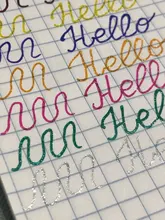 Hello
Hello
Hello
Hell
Hel